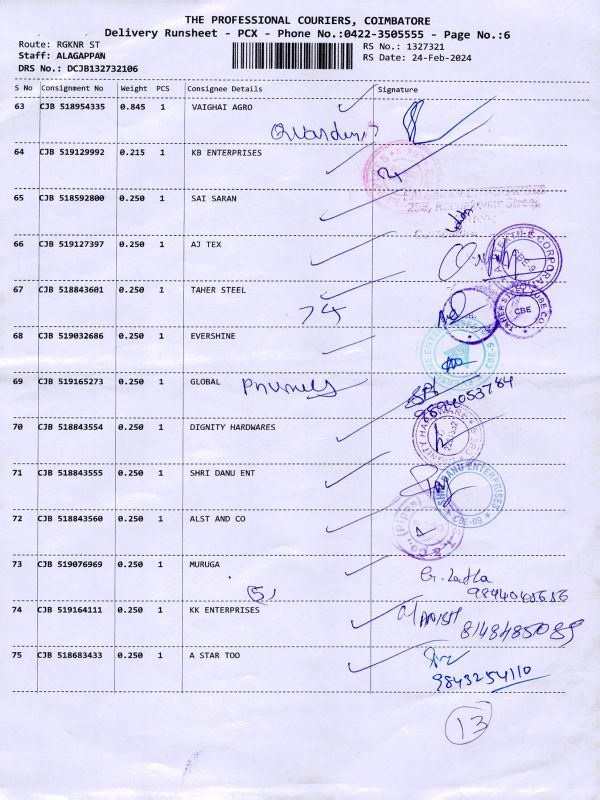 THE PROFESSIONAL COURIERS, COIMBATORE
Delivery Runsheet - PCX - Phone No.:0422-3505555 - Page No.:6
Route: RGKNR ST
RS No.: 1327321
Staff: ALAGAPPAN
RS Date: 24-Feb-2024
DRS No.: DCJB132732106
S No Consignment No Weight PCS Consignee Details Signature
63 CJB 518954335 0.845 1 VAIGHAI AGRO
64 CJB 519129992 0.215 1 KB ENTERPRISES
65 CJB 518592800 0.250 1 SAI SARAN
66 CJB 519127397 0.250 1 AJ TEX
67 CJB 518843601 0.250 1 TAHER STEEL
74
TAHER STEEL TUBE CO. CBE
68 CJB 519032686 0.250 1 EVERSHINE
69 CJB 519165273 0.250 1 GLOBAL
9894053784
70 CJB 518843554 0.250 1 DIGNITY HARDWARES
71 CJB 518843555 0.250 1 SHRI DANU ENT
SHRI DANU ENTERPRISES CBE-09
72 CJB 518843560 0.250 1 ALST AND CO
73 CJB 519076969 0.250 1 MURUGA
5
74 CJB 519164111 0.250 1 KK ENTERPRISES
8148485089
75 CJB 518683433 0.250 1 A STAR TOO
9843254110
13